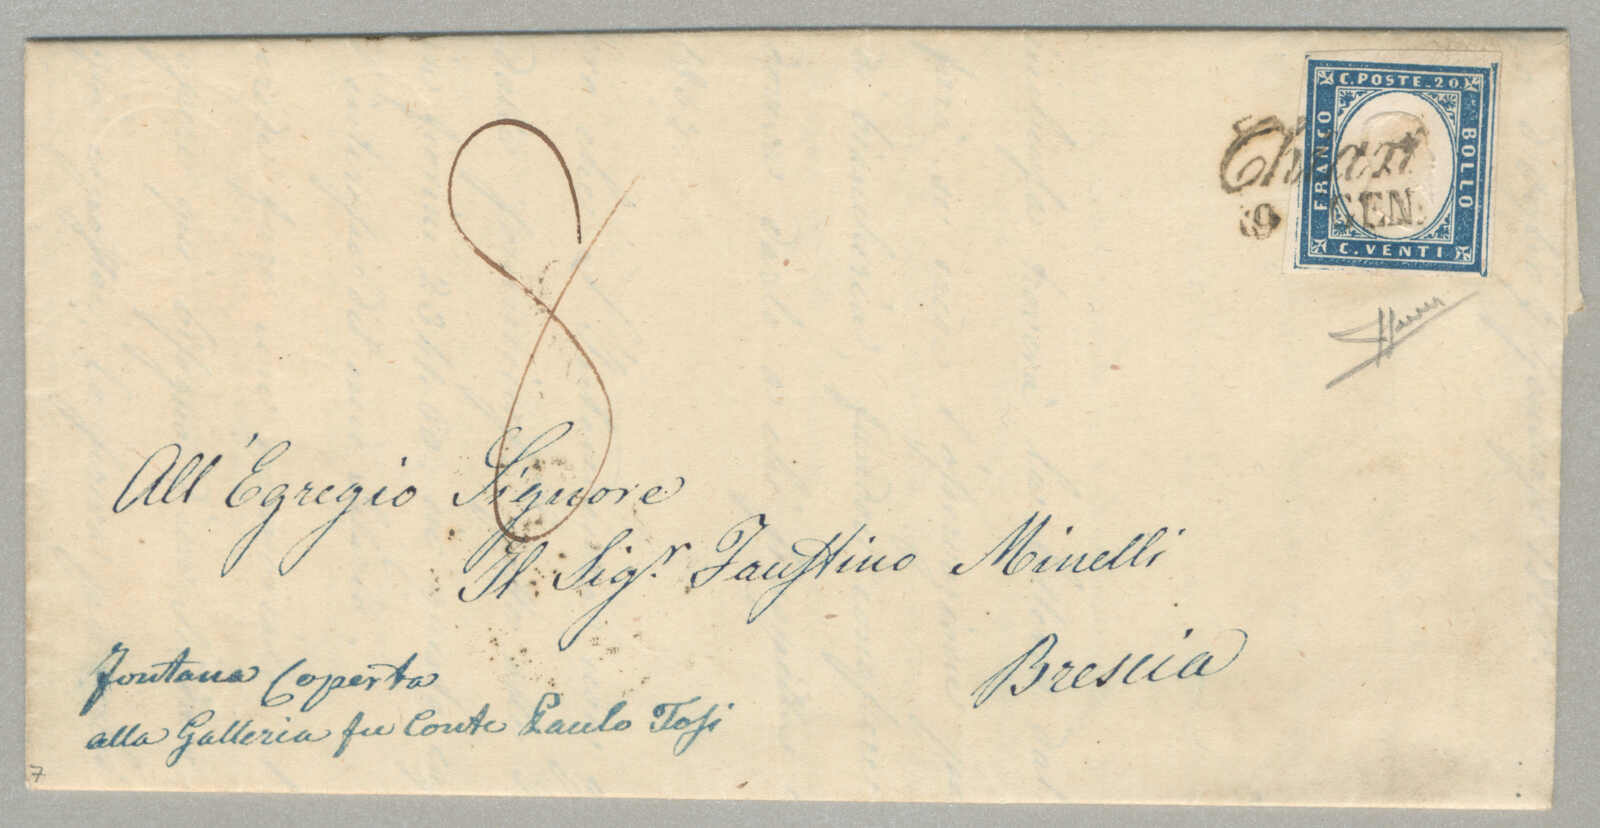 C. POSTE. 20
FRANCO
BOLLO
C. VENTI
Chiari
9 GEN.
8
All' Egregio Signore
Il Sigr. Faustino Minelli
Brescia
Fontana Coperta
alla Galleria fu Conte Paulo Tosi
7